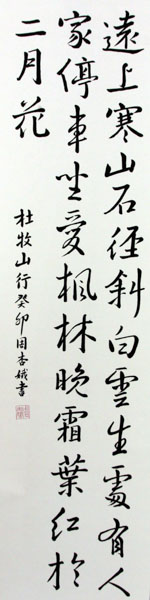 遠上寒山石徑斜白雲生處有人
家停車坐愛楓林晚霜葉紅於
二月花
杜牧山行癸卯周杏娥書